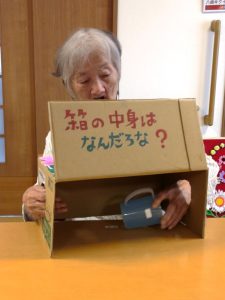 箱の中身は
なんだろな?